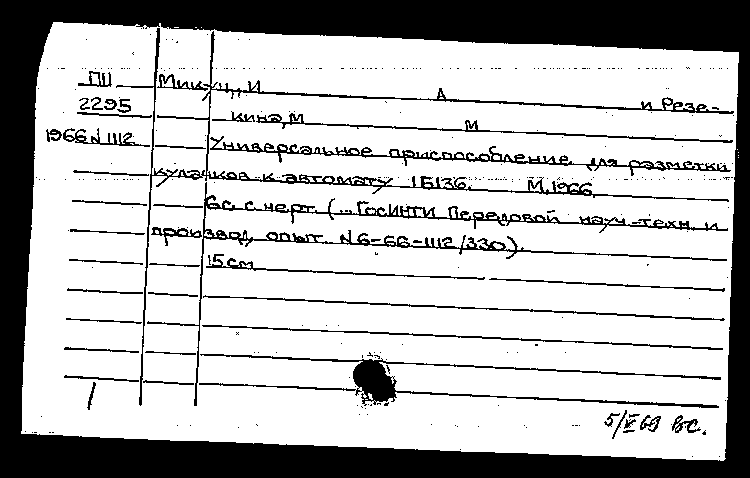 ПШ Микуц, И А и Резе-
2295 кина, М М
1966 N 1112 Универсальное приспособление для разметки
кулачков к автомату 1Б136. М, 1966.
6с. с черт. (...ГосИНТИ Передовой науч.-техн. и
производ, опыт. N 6-66-1112/330).
15см
5/V 69 ВС.